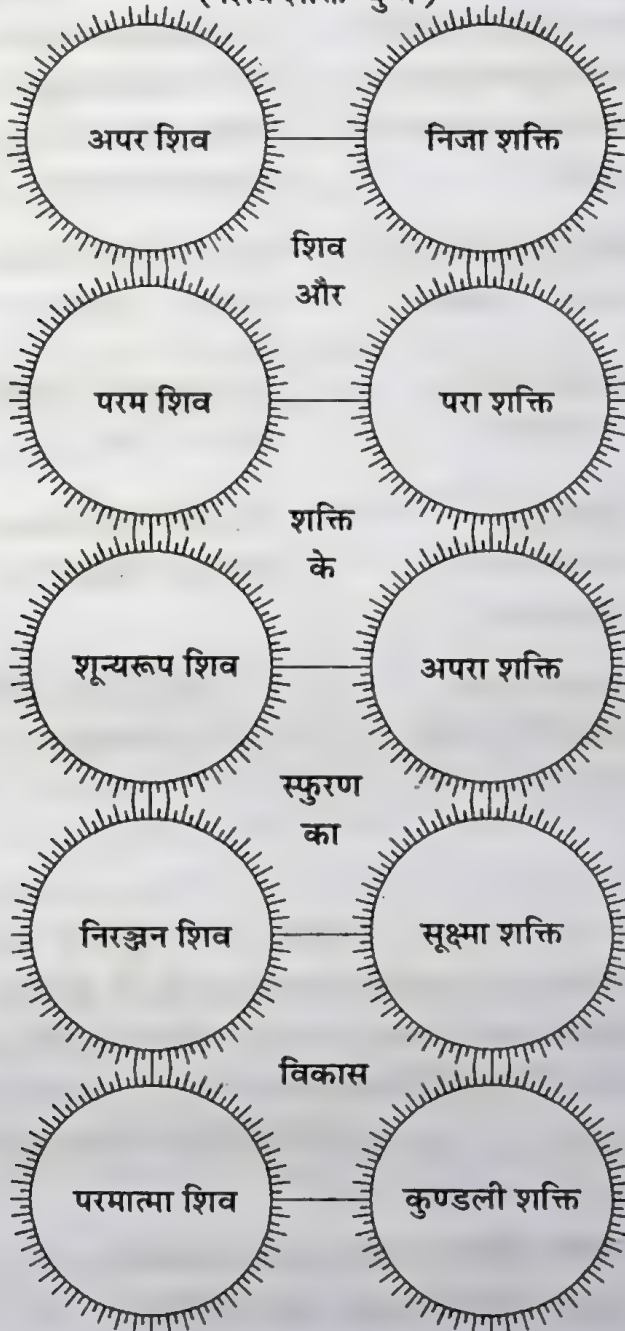 अपर शिव
निजा शक्ति
शिव
और
परम शिव
परा शक्ति
शक्ति
के
शून्यरूप शिव
अपरा शक्ति
स्फुरण
का
निरञ्जन शिव
सूक्ष्मा शक्ति
विकास
परमात्मा शिव
कुण्डली शक्ति